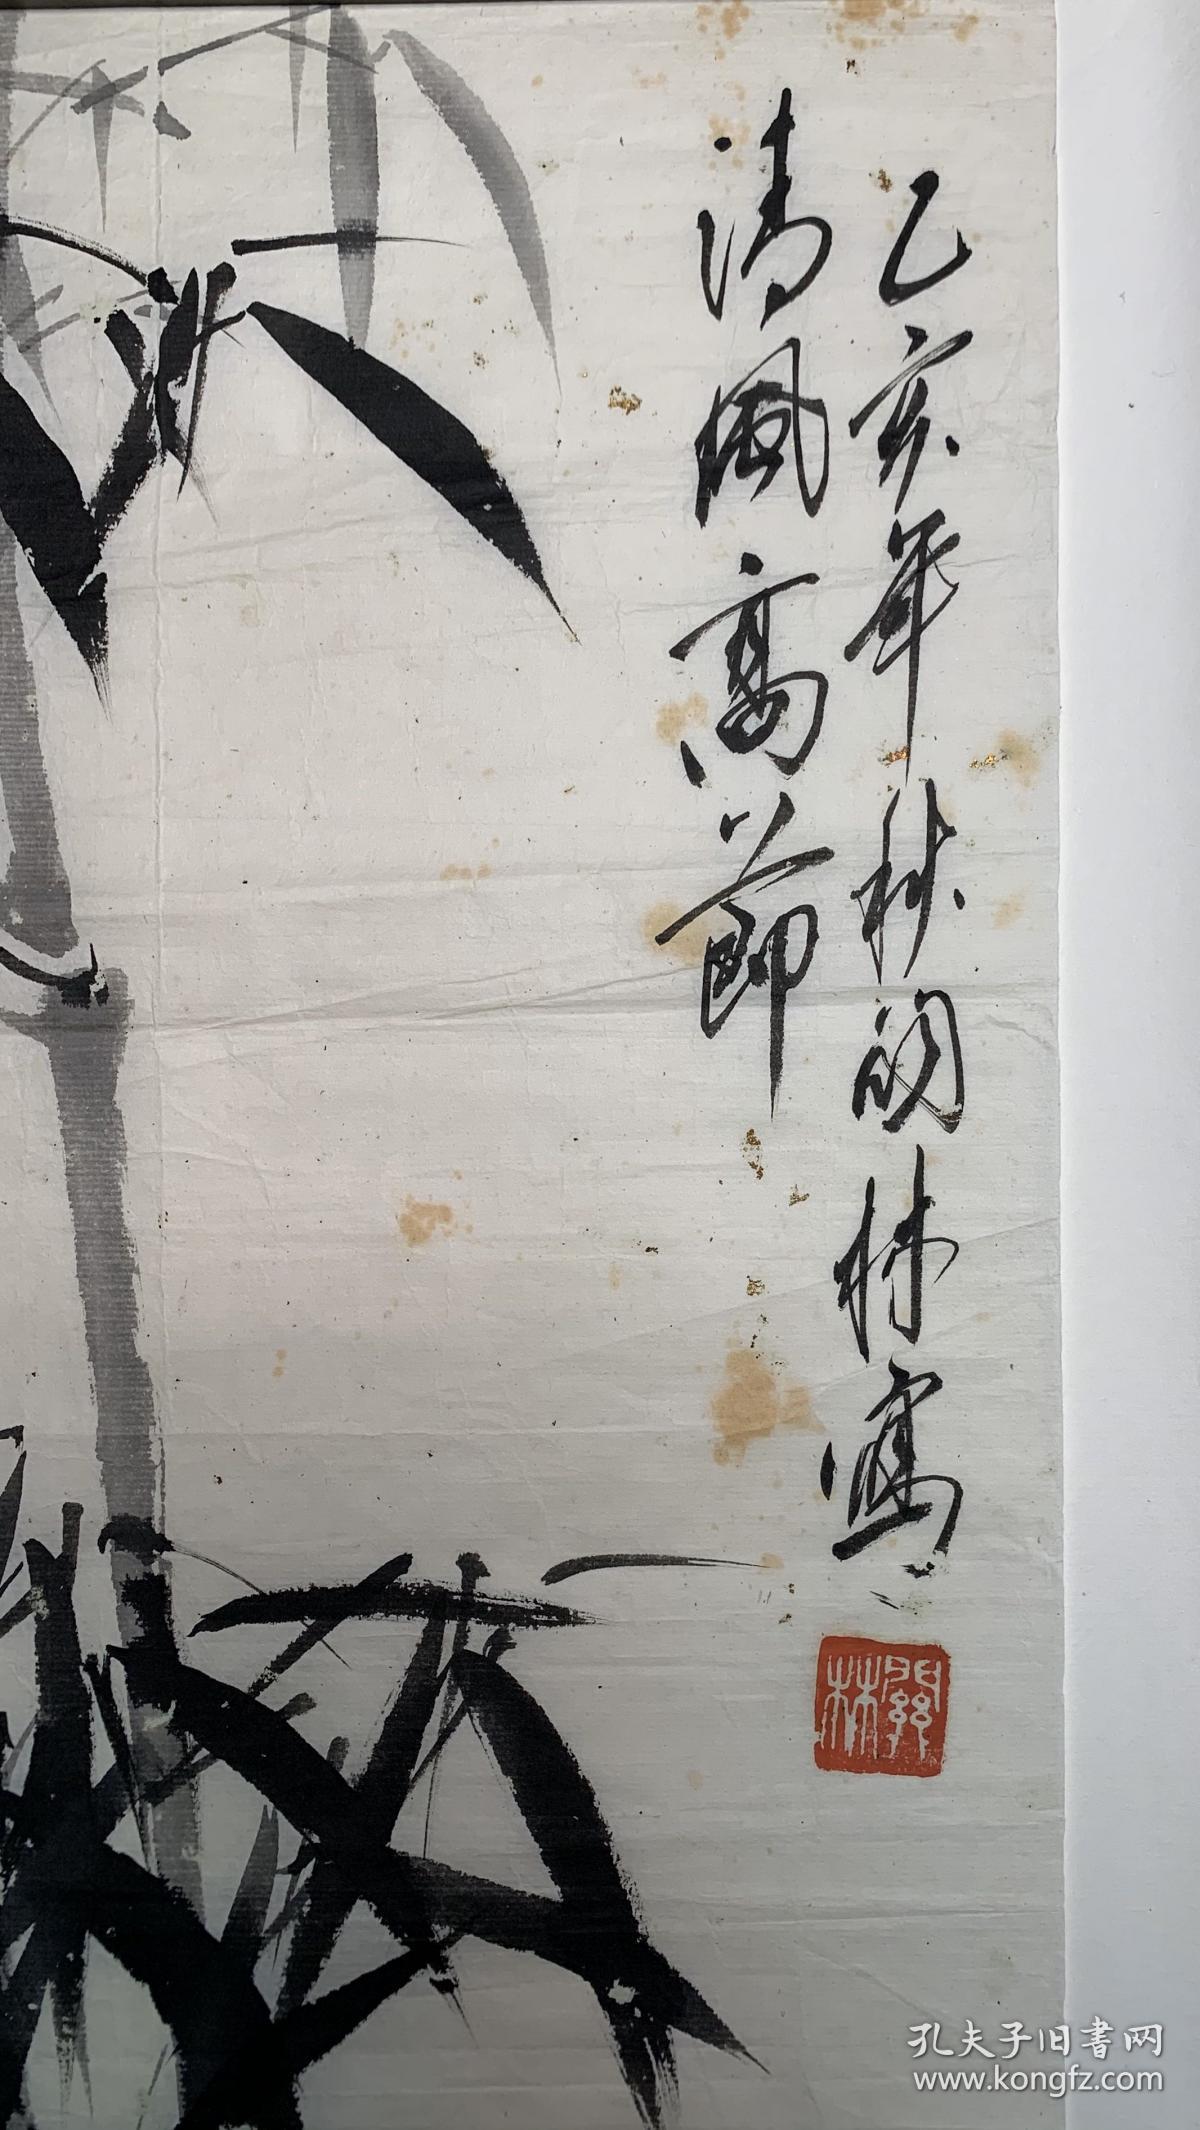 清風高節
乙亥年秋關林寫
關林
孔夫子旧書网
www.kongfz.com